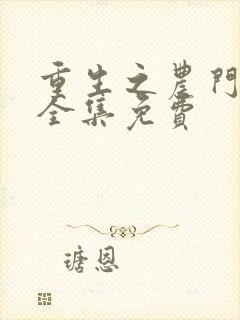 重生之農門
全集免費
瑭恩